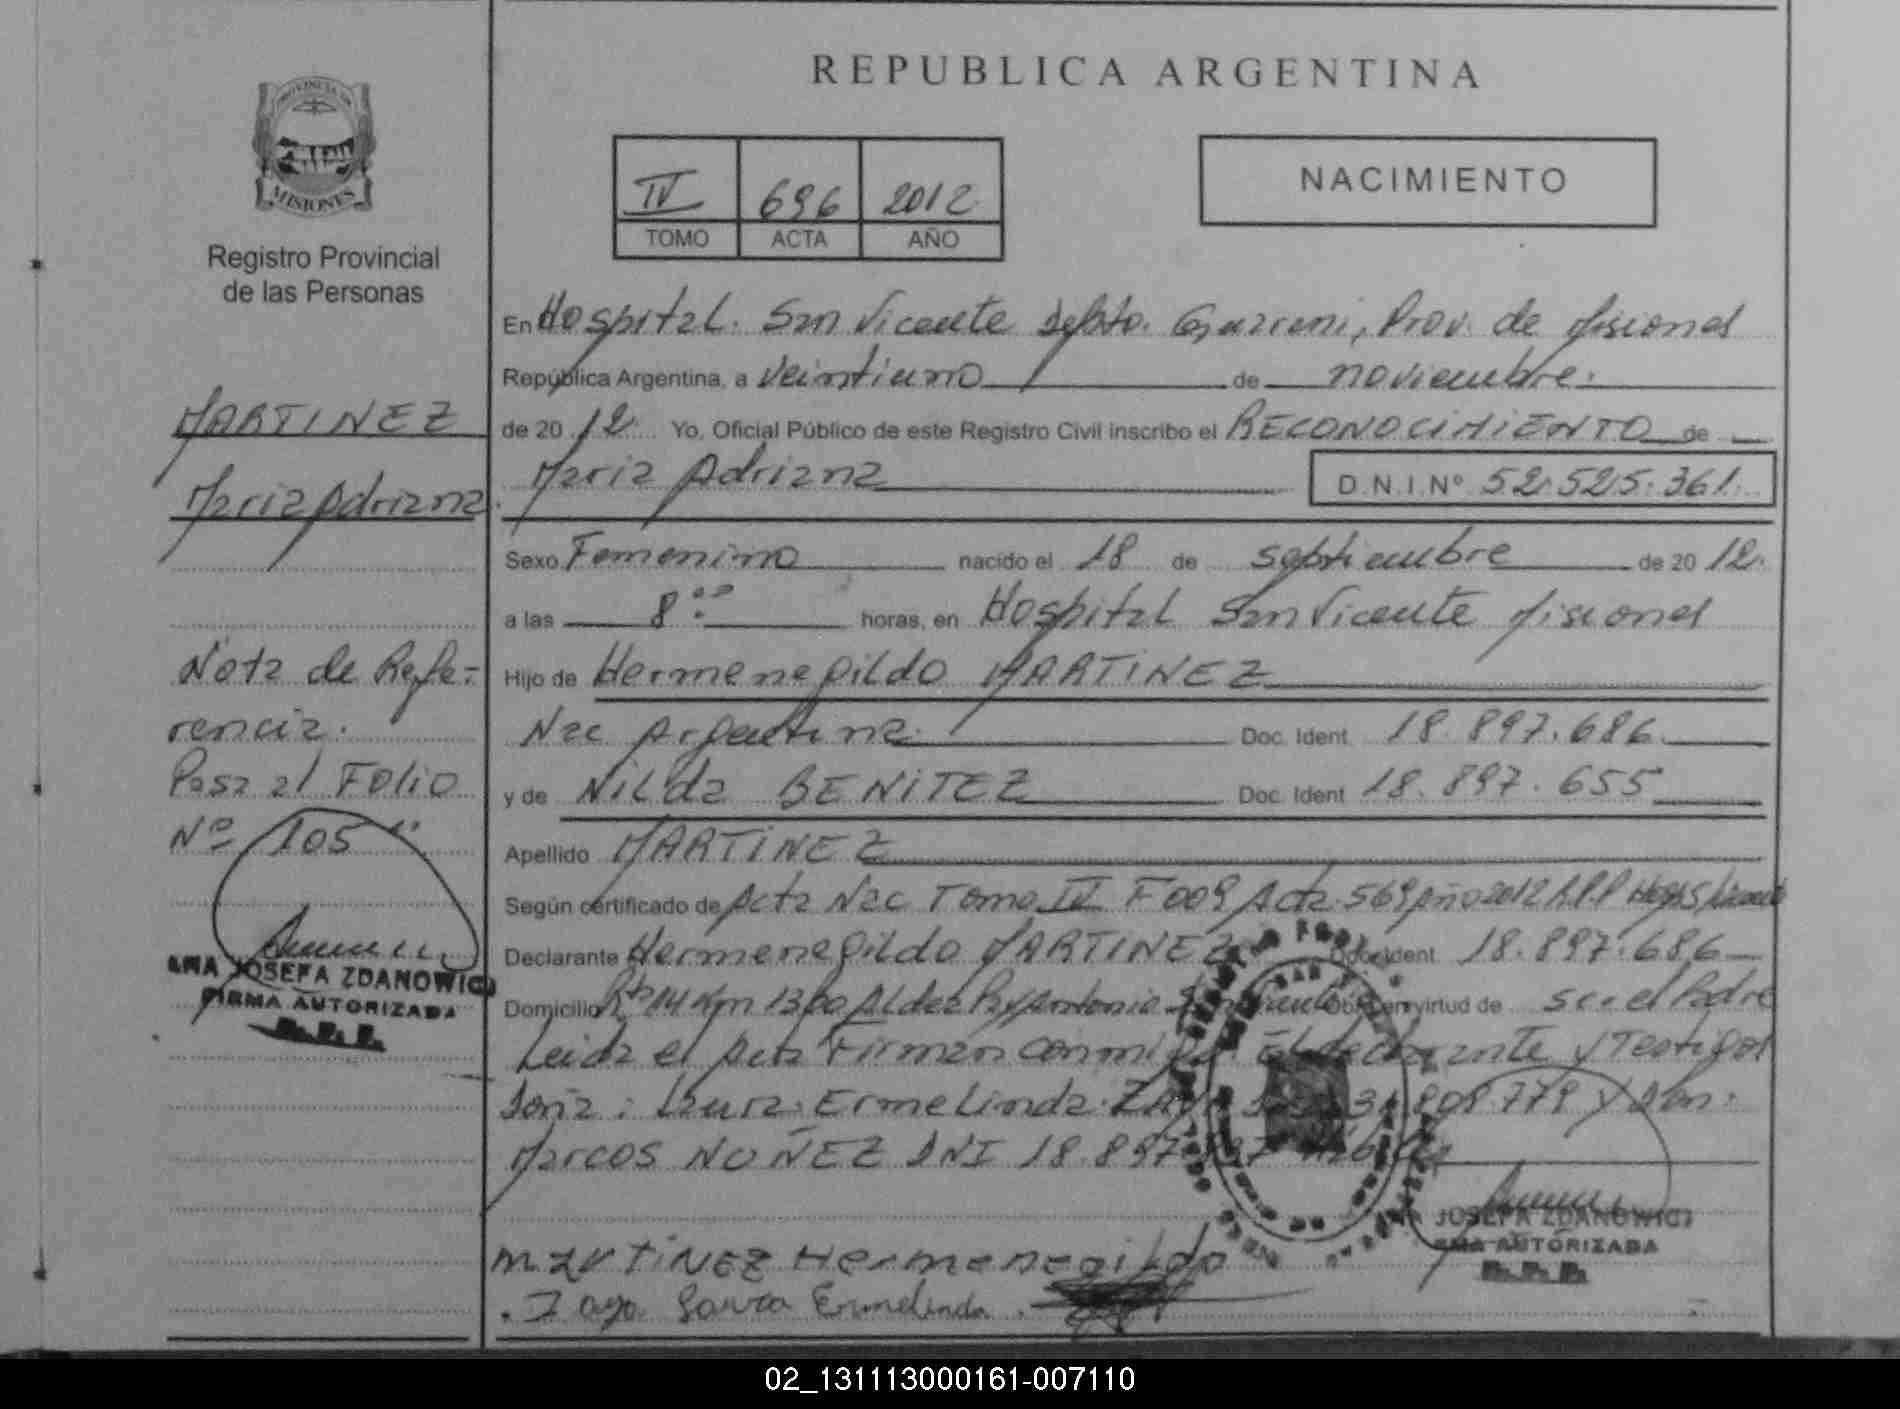 REPUBLICA ARGENTINA
PROVINCIA DE
MISIONES
Registro Provincial
de las Personas
IV 696 2012
TOMO ACTA AÑO
NACIMIENTO
MARTINEZ
Maria Adriana
Nota de Refe-
rencia.
Pasa al FOLIO
Nº 105
JOSEFA ZDANOWICZ
FIRMA AUTORIZADA
R.P.P.
En Hospital San Vicente Depto. Guarani, Prov. de Misiones
República Argentina, a veintiuno de noviembre
de 20 12 Yo, Oficial Público de este Registro Civil inscribo el RECONOCIMIENTO de
Maria Adriana D.N.I.Nº 52.525.361
Sexo Femenino nacido el 18 de septiembre de 20 12
a las 8:00 horas, en Hospital San Vicente Misiones
Hijo de Hermenegildo MARTINEZ
Nac Argentina Doc. Ident 18.897.686
y de NILda BENITEZ Doc. Ident 18.897.655
Apellido MARTINEZ
Según certificado de Acta Nac Tomo IV F 009 Acta 569 Año 2012 R.P.P
Declarante Hermenegildo MARTINEZ Doc. Ident 18.897.686
Domicilio Km 1300 Aldea Antonio Obra en virtud de ser el Padre
Leida el Acta Firman conmigo El declarante y Testigos
Doña: Laura Ermelinda 809.779 y Don.
Marcos NUÑEZ DNI 18.897
MARTINEZ Hermenegildo
Laura Ermelinda
JOSEFA ZDANOWICZ
FIRMA AUTORIZADA
R.P.P.
02_131113000161-007110